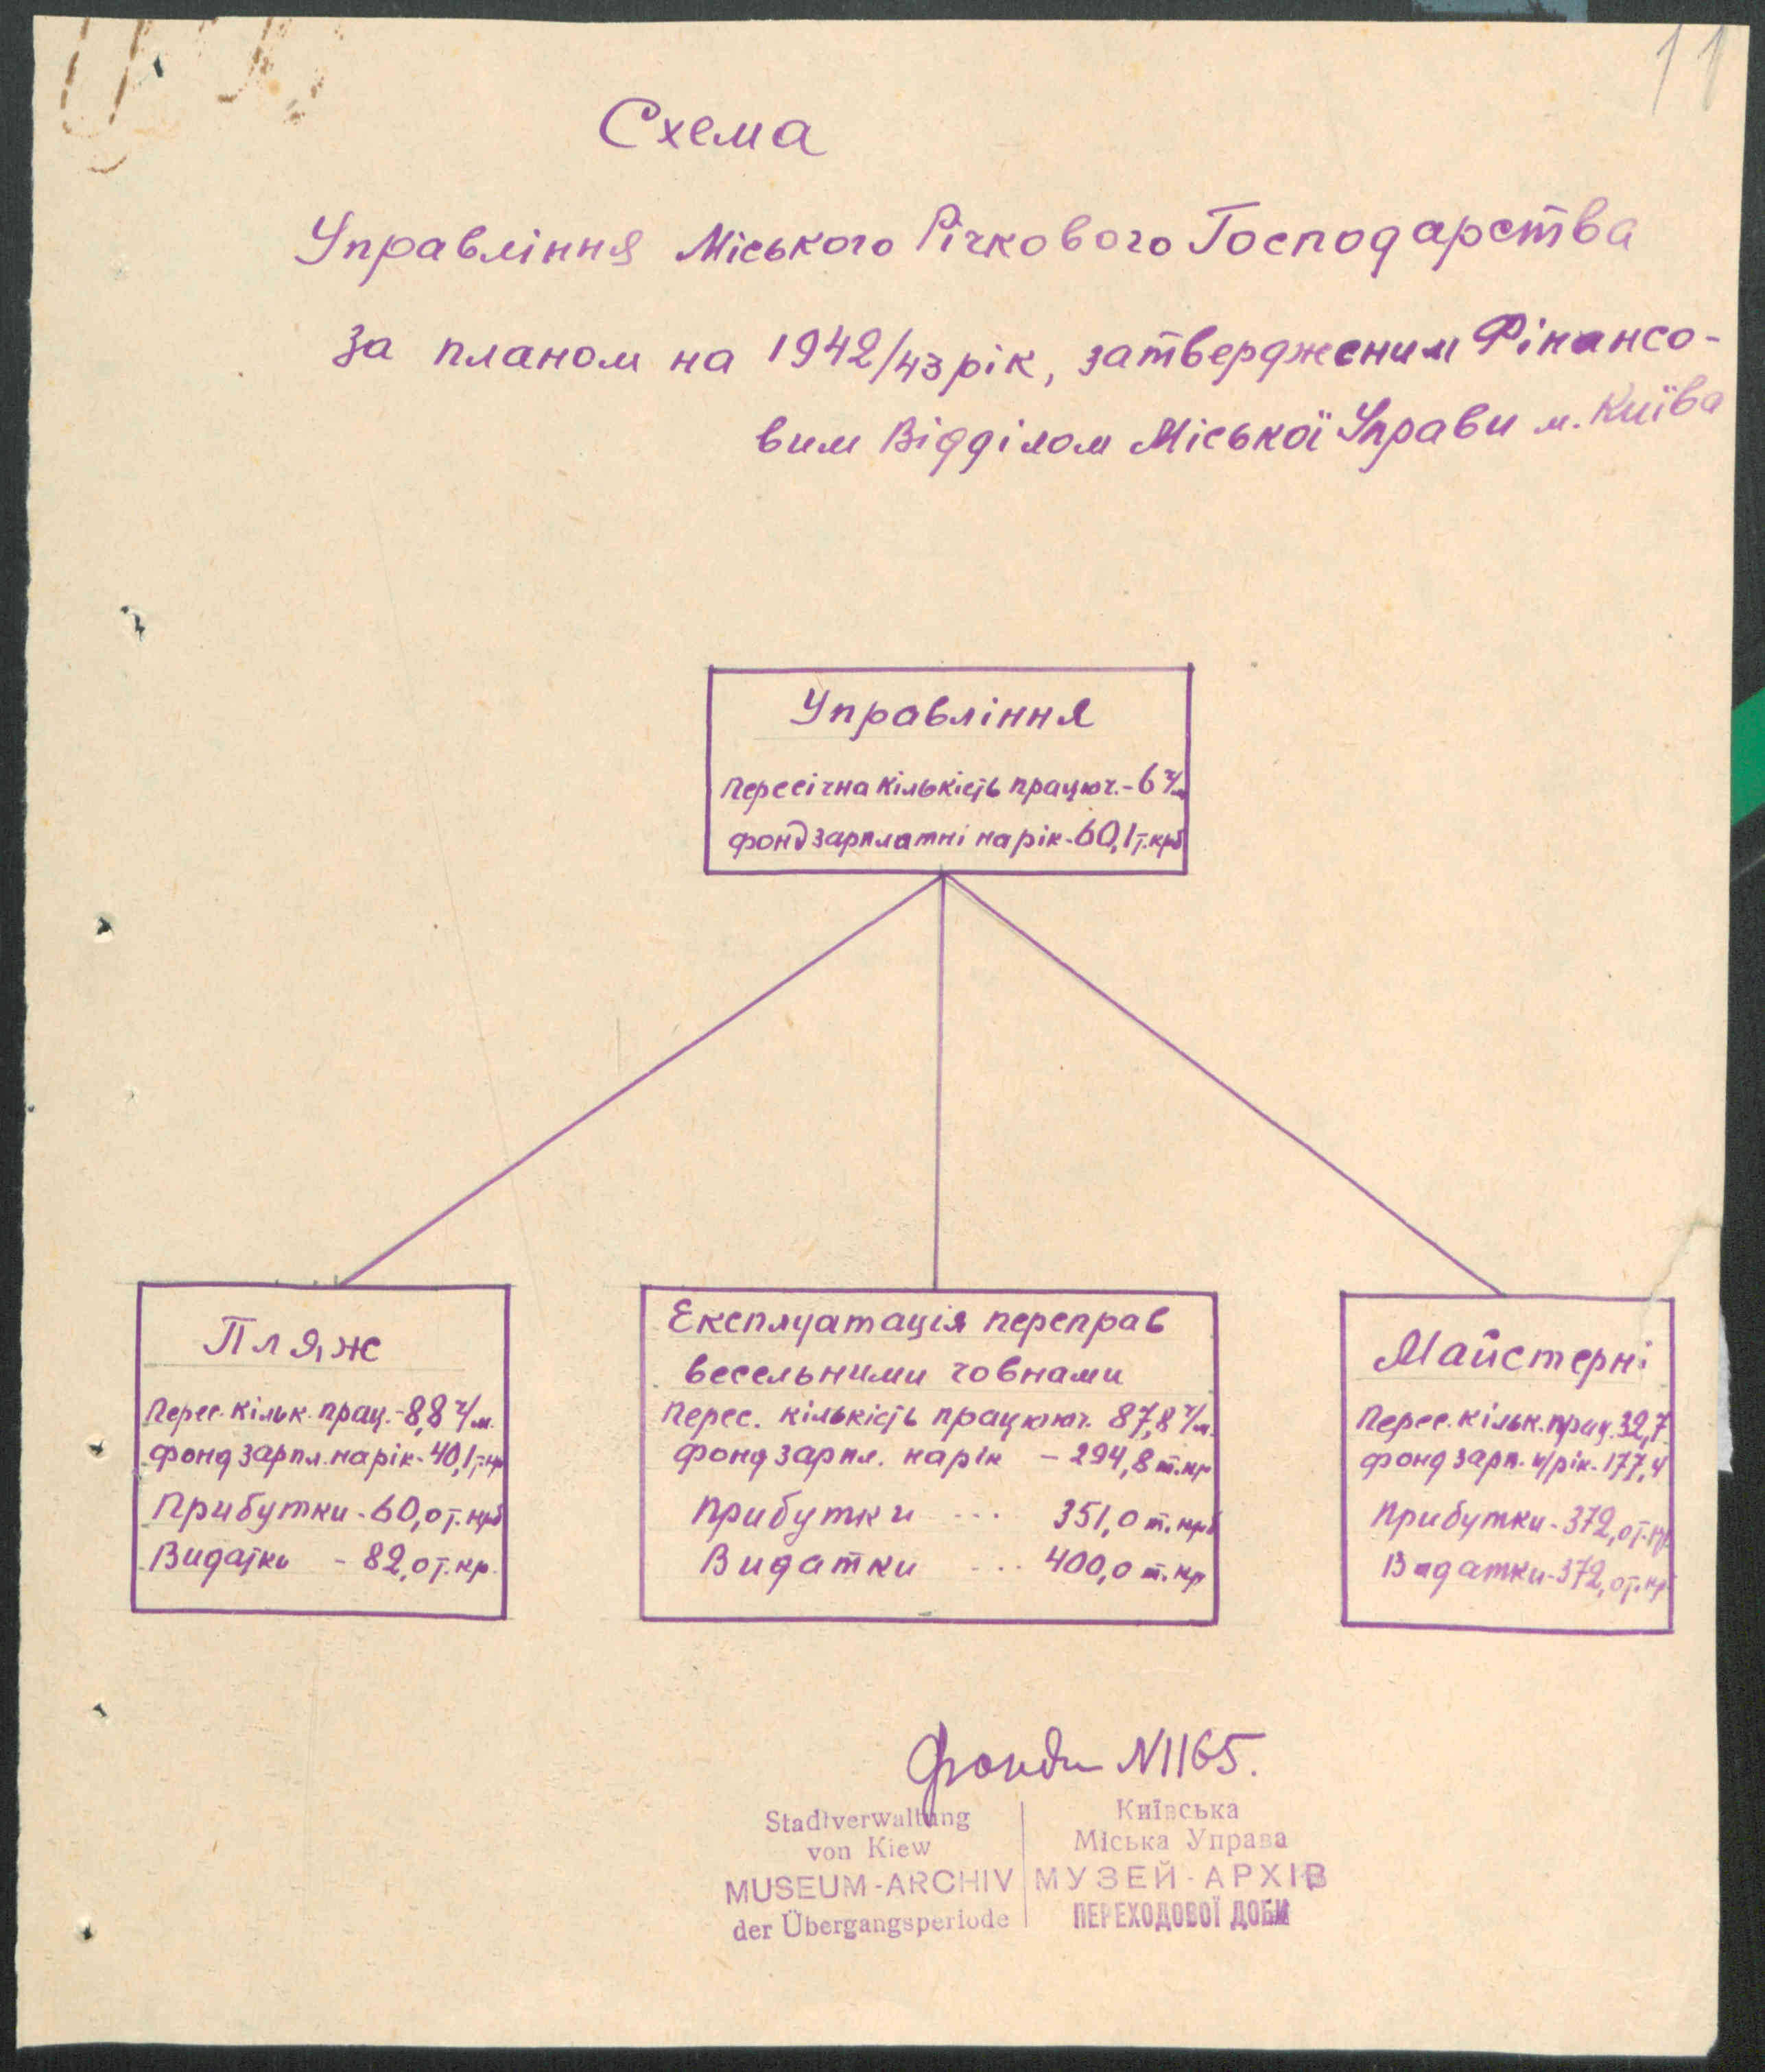 11
Схема
Управління Міського Річкового Господарства
за планом на 1942/43 рік, затвердженим Фінансо-
вим Відділом Міської Управи м. Київа
Управління
Пересічна кількість працюч.-6 ч/м
фонд зарплатні на рік-60,1 т.крб
Пляж
Перес. кільк. прац.-8,8 ч/м.
фонд зарпл. на рік-40,1 т.кр
Прибутки-60,0 т.крб
Видатки - 82,0 т.кр.
Експлуатація переправ
весельними човнами
Перес. кількість працююч. 87,8 ч/м.
фонд зарпл. на рік - 294,8 т.кр
Прибутки ... 351,0 т.крб
Видатки ... 400,0 т.кр
Майстерні
Перес. кільк. прац. 32,7
фонд зарп. н/рік-177,4
Прибутки-372,0 т.кр
Видатки-372,0 т.кр
Фонди N1165.
Stadtverwaltung
von Kiew
MUSEUM-ARCHIV
der Übergangsperiode
Київська
Міська Управа
МУЗЕЙ-АРХІВ
ПЕРЕХОДОВОЇ ДОБИ